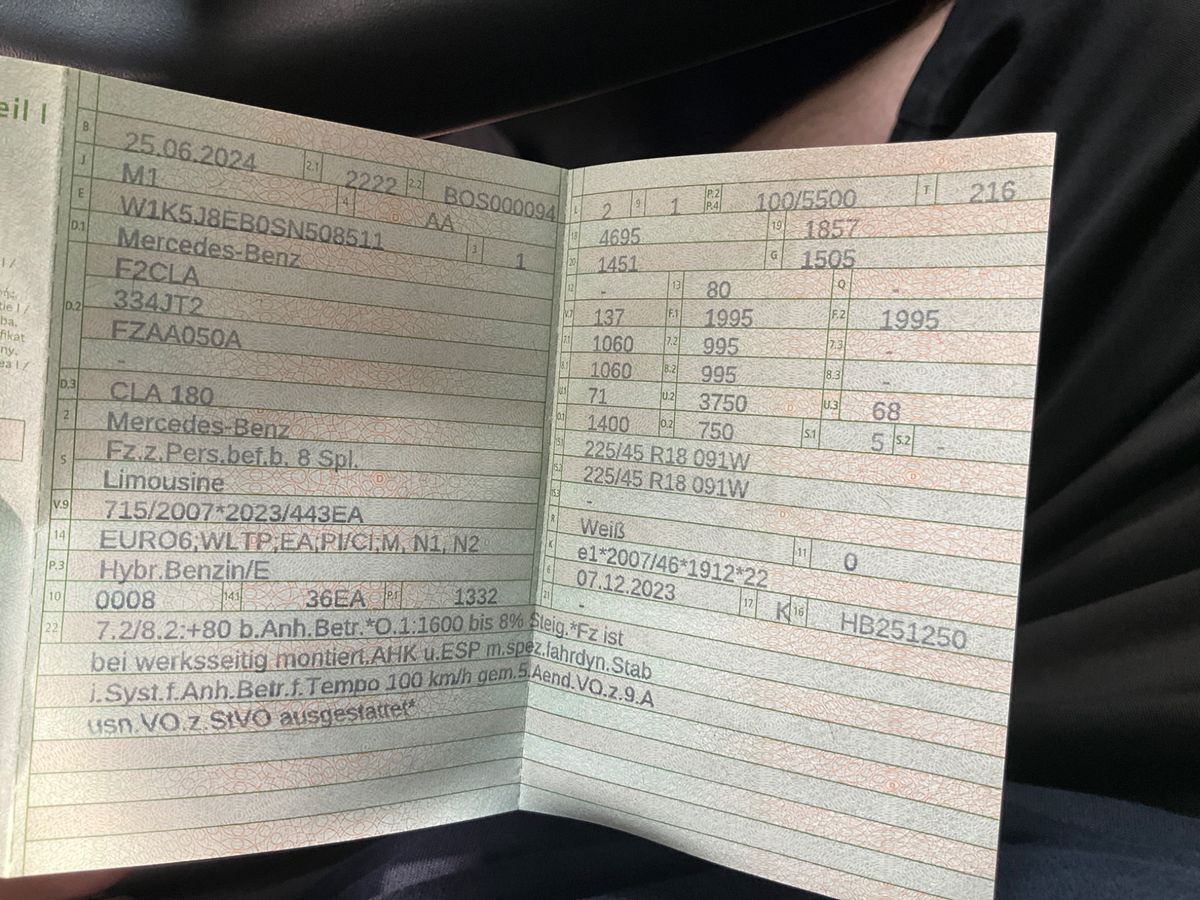 eil I
B 25.06.2024 2.1 2222 2.2 BOS000094
J M1 4 AA
E W1K5J8EB0SN508511 3 1
D.1 Mercedes-Benz
F2CLA
D.2 334JT2
FZAA050A
-
D.3 CLA 180
2 Mercedes-Benz
5 Fz.z.Pers.bef.b. 8 Spl.
Limousine
V.9 715/2007*2023/443EA
14 EURO6;WLTP;EA;PI/CI;M, N1, N2
P.3 Hybr.Benzin/E
10 0008 14.1 36EA P.1 1332
22 7.2/8.2:+80 b.Anh.Betr.*O.1:1600 bis 8% Steig.*Fz ist
bei werksseitig montiert.AHK u.ESP m.spez.fahrdyn.Stab
i.Syst.f.Anh.Betr.f.Tempo 100 km/h gem.5.Aend.VO.z.9.A
usn.VO.z.StVO ausgestattet*
L 2 9 1 P.2 P.4 100/5500 T 216
18 4695 19 1857
20 1451 G 1505
12 - 13 80 Q -
V.7 137 F.1 1995 F.2 1995
7.1 1060 7.2 995 7.3 -
8.1 1060 8.2 995 8.3 -
U.1 71 U.2 3750 U.3 68
O.1 1400 O.2 750 S.1 5 S.2 -
15.1 225/45 R18 091W
15.2 225/45 R18 091W
15.3 -
R Weiß 11 0
K e1*2007/46*1912*22
6 07.12.2023 17 K 16 HB251250
21 -